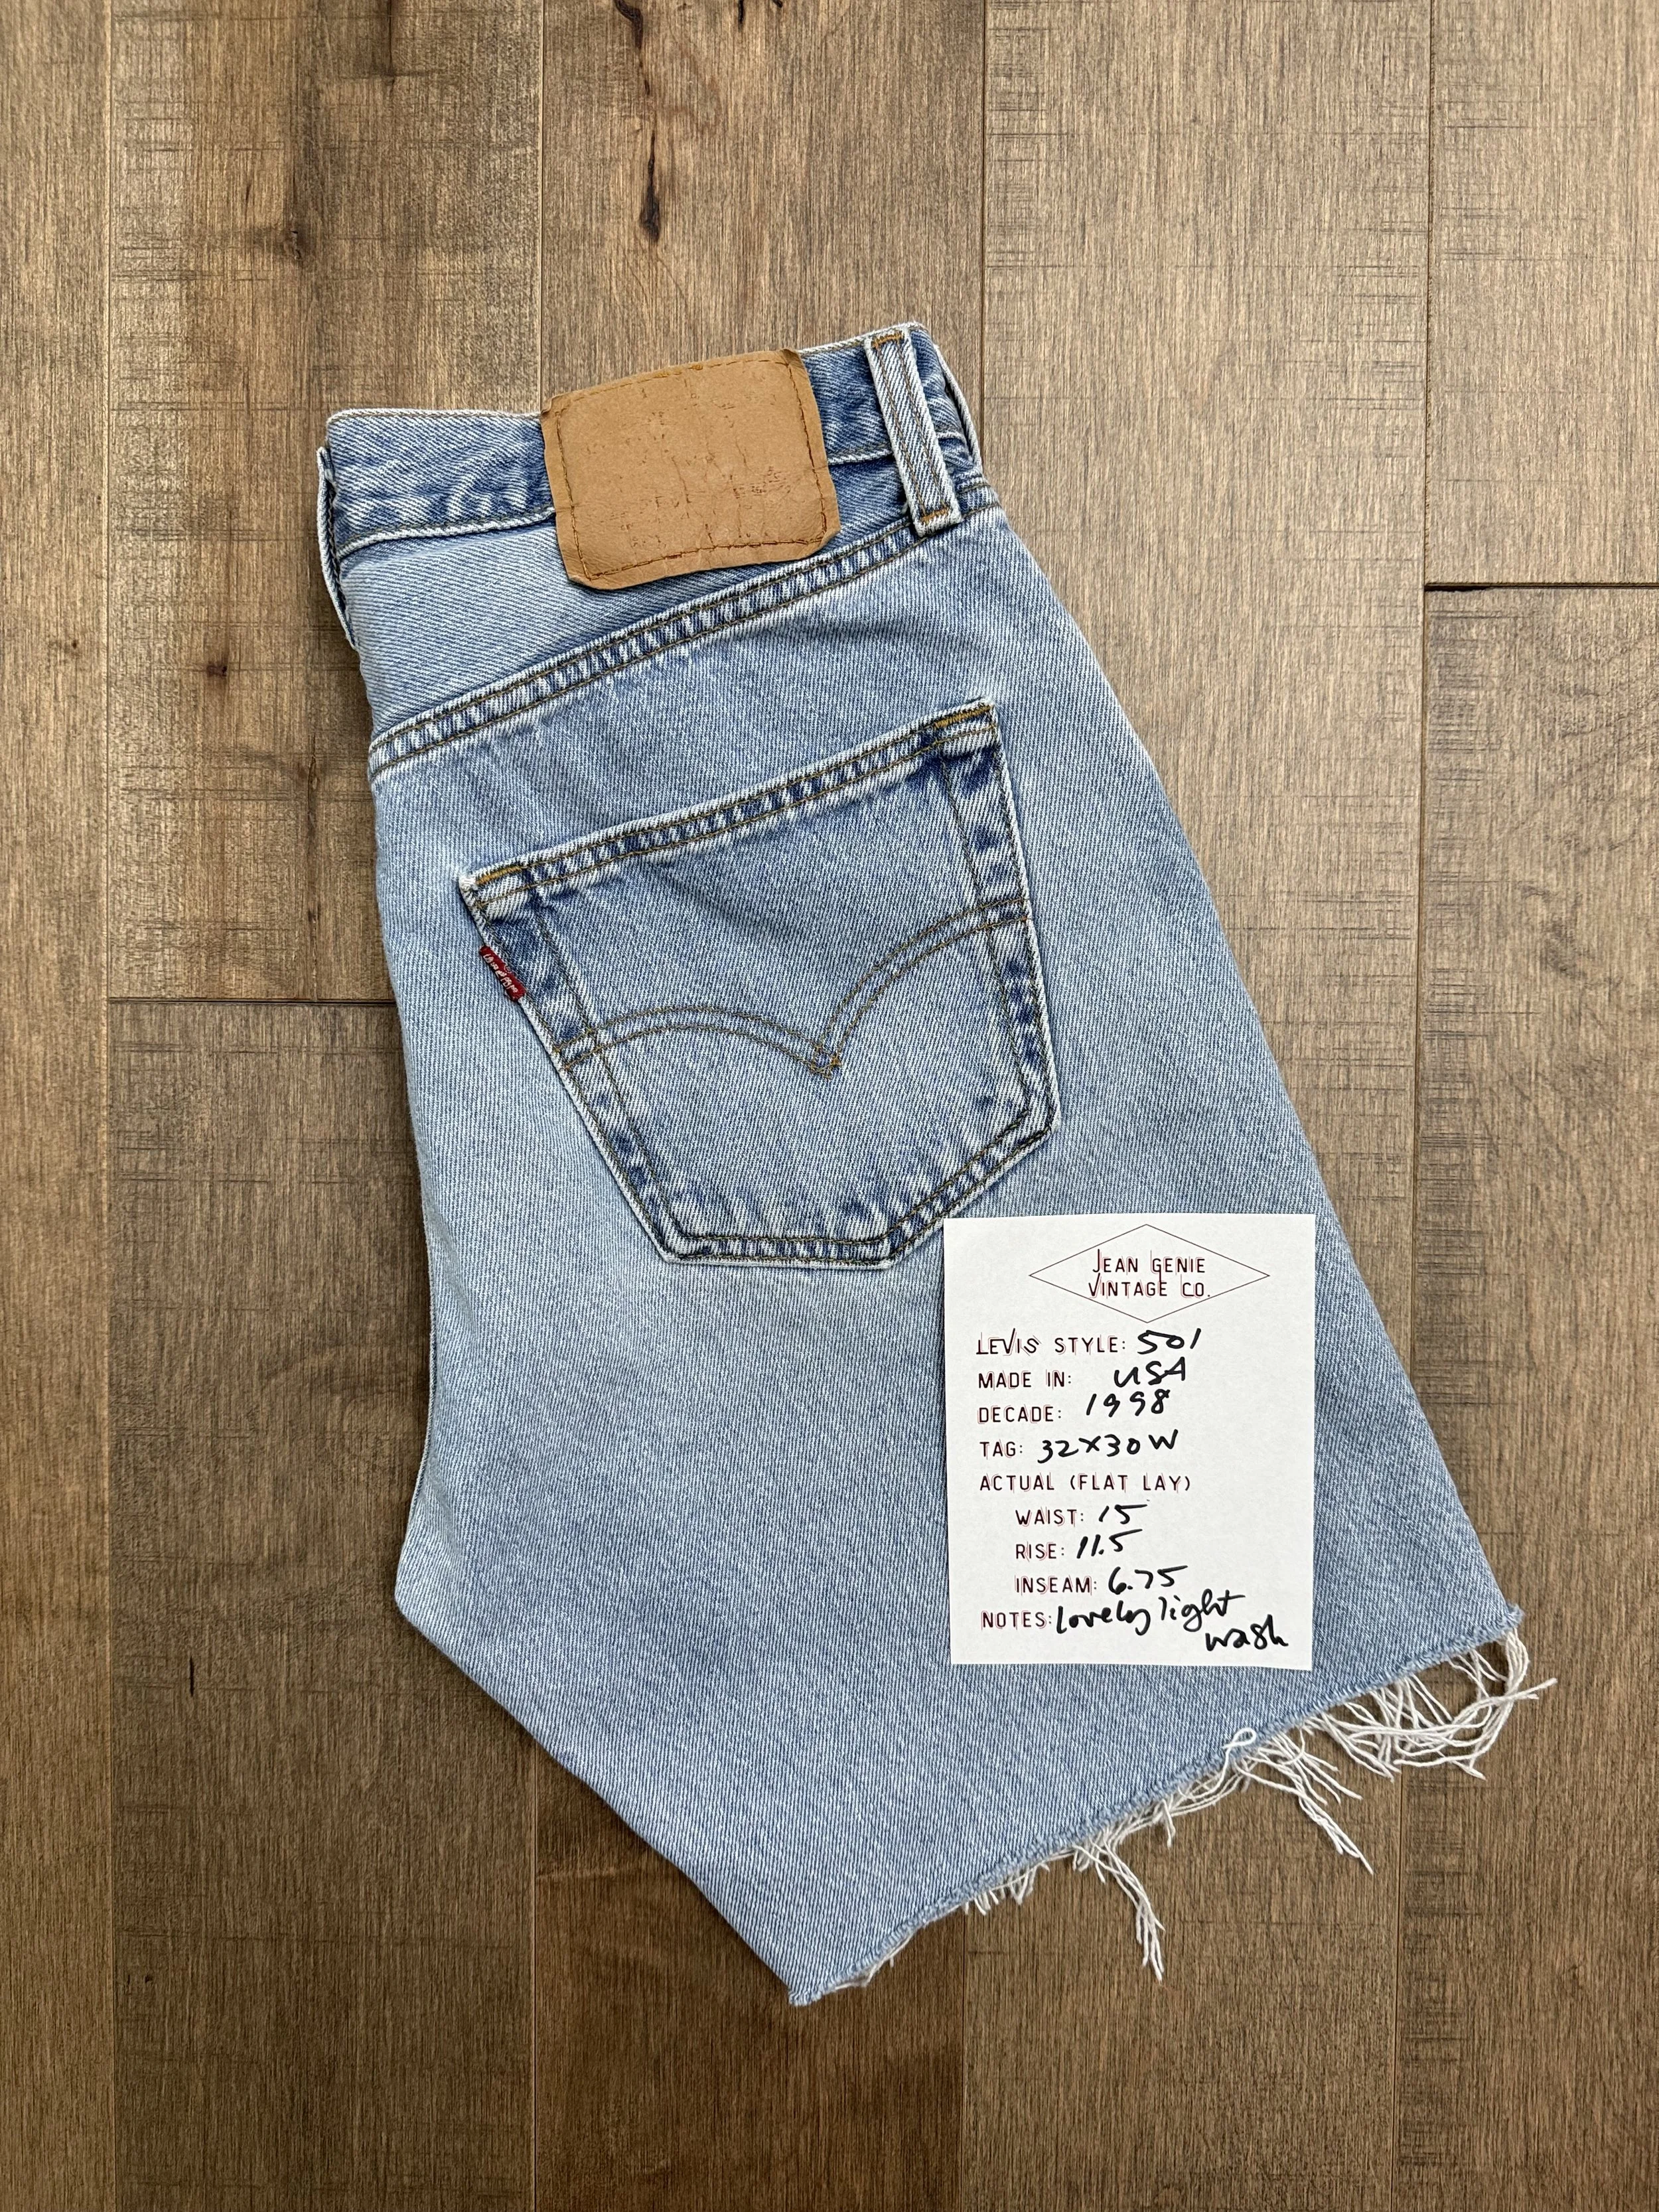 JEAN GENIE
VINTAGE CO.
LEVIS STYLE: 501
MADE IN: USA
DECADE: 1998
TAG: 32X30W
ACTUAL (FLAT LAY)
WAIST: 15
RISE: 11.5
INSEAM: 6.75
NOTES: Lovely light
wash